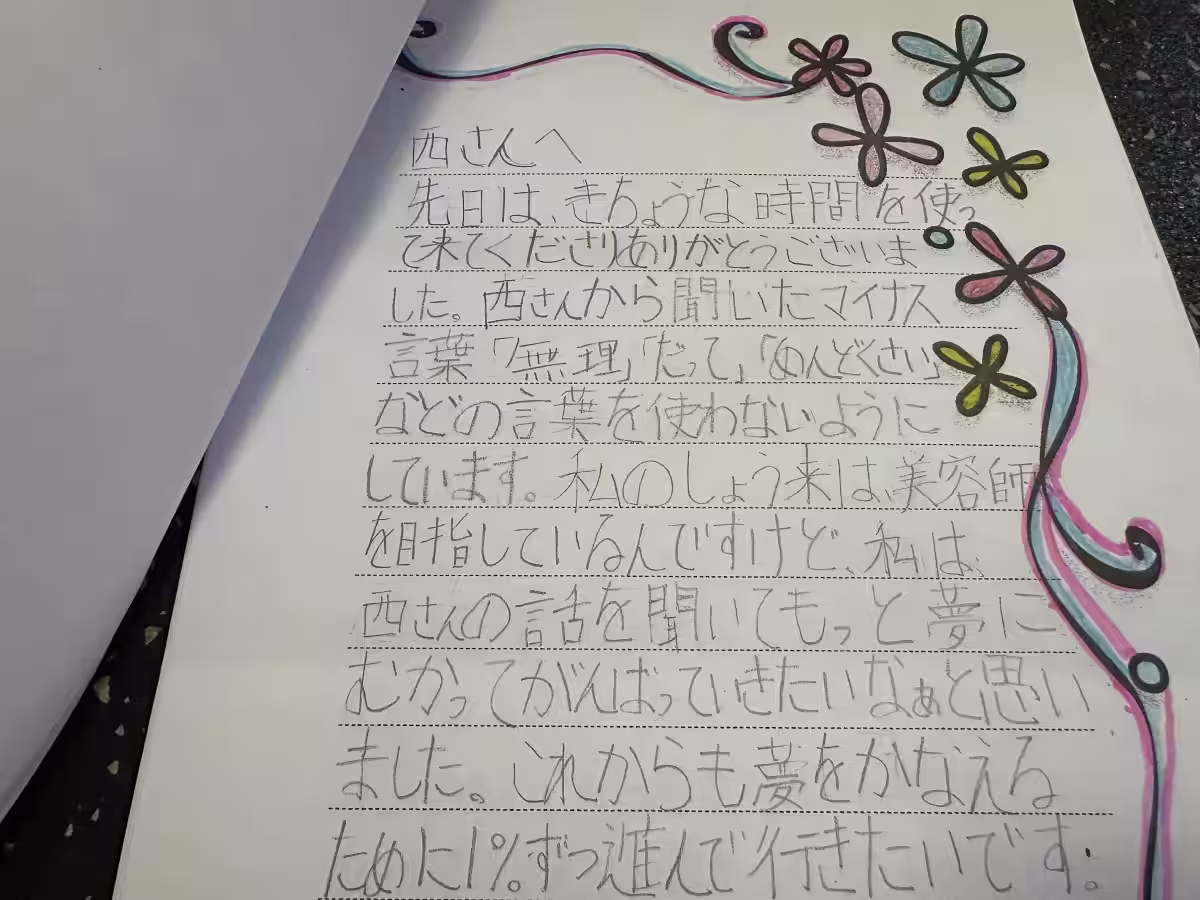 西さんへ
先日は、きちょうな時間を使っ
て来てくださりありがとうございま
した。西さんから聞いたマイナス
言葉「無理」「だって」「めんどくさい」
などの言葉を使わないように
しています。私のしょう来は、美容師
を目指しているんですけど、私は、
西さんの話を聞いてもっと夢に
むかってがんばっていきたいなぁと思い
ました。これからも夢をかなえる
ために1%ずつ進んで行きたいです。